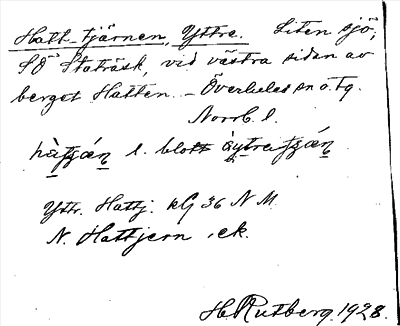 Hatt-tjärnen, Yttre. Liten sjö,
SÖ Staträsk, vid västra sidan av
berget Hatten. – Överkalix sn o. tg.
Norrb. l.
l. blott
Yttr. Hattj. kG 36 N M.
N. Hattjern, ek.
H Rutberg. 1928.